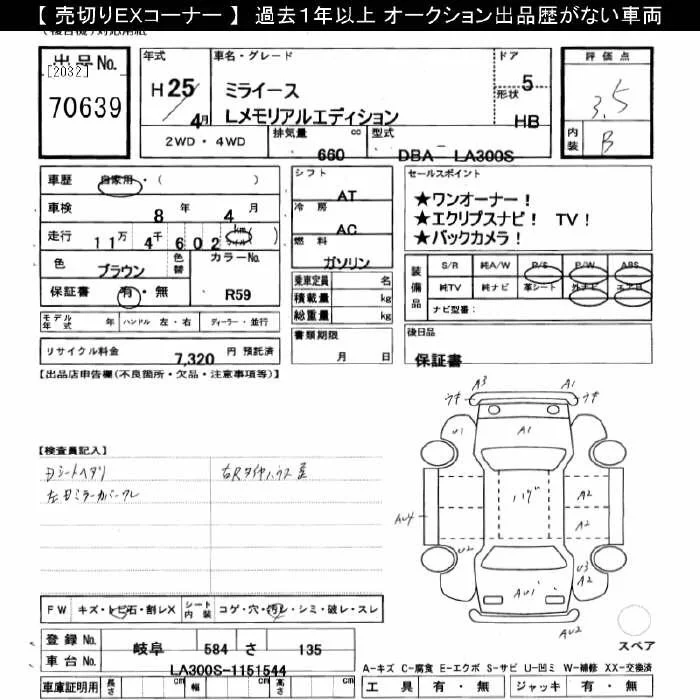 【 売切りＥＸコーナー 】 過去１年以上 オークション出品歴がない車両
出品No.
[2032]
70639
年式
H 25 4月
車名・グレード
ミライース
Lメモリアルエディション
ドア
5
形状
HB
2WD・4WD
排気量 cc
660
型式
DBA - LA300S
評価点
3.5
内装
B
車歴 自家用・( )
車検 8 年 4 月
走行 11万 4千 6 0 2 km
色 ブラウン
色替
カラーNo.
R59
保証書 有・無
シフト
AT
冷房
AC
燃料
ガソリン
乗車定員 名
積載量 kg
総重量 kg
セールスポイント
★ワンオーナー！
★エクリプスナビ！ TV！
★バックカメラ！
装備品
S/R 純A/W P/S P/W ABS
純TV 純ナビ 革シート 外ナビ エアB
ナビ型番：
モデル年式 年 ハンドル 左・右 ディーラー・並行
リサイクル料金 7,320 円 預託済
書類期限
月 日
後日品
保証書
【出品店申告欄(不良箇所・欠品・注意事項等)】
【検査員記入】
A3 A1
ウキ ウキ
U1 A1
ハゲ
A2
A2
AU4
U2 U3
A2
AU1
AU2
FW キズ・トビ石・割レX シート内装 コゲ・穴・汚レ・シミ・破レ・スレ
登録 No. 岐阜 584 さ 135
車台 No. LA300S-1151544
車庫証明用 長さ cm 幅 cm 高さ cm
スペア
A-キズ C-腐食 E-エクボ S-サビ U-凹ミ W-補修 XX-交換済
工具 有・無 ジャッキ 有・無